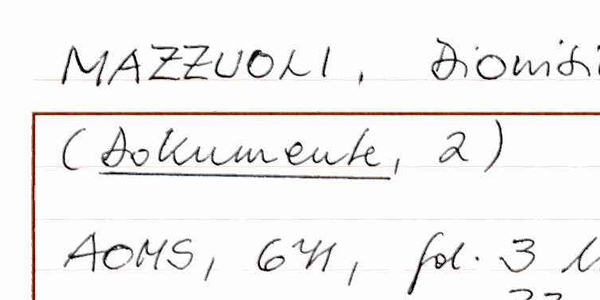 MAZZUOLI, Dionisi
(Dokumente, 2)
AOMS, 641, fol. 3